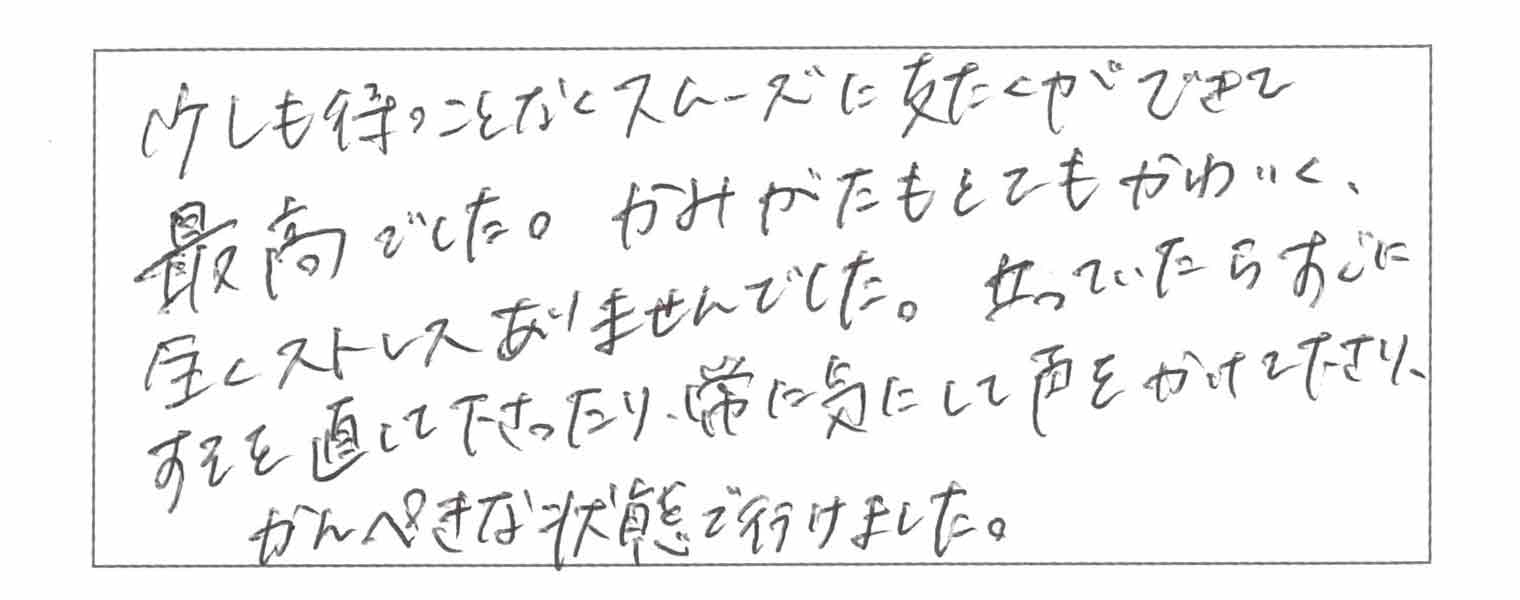 少しも待つことなくスムーズに支たくができて
最高でした。かみがたもとてもかわいく、
全くストレスありませんでした。立っていたらすぐに
すそを直して下さったり、常に気にして声をかけて下さり、
かんぺきな状態で行けました。